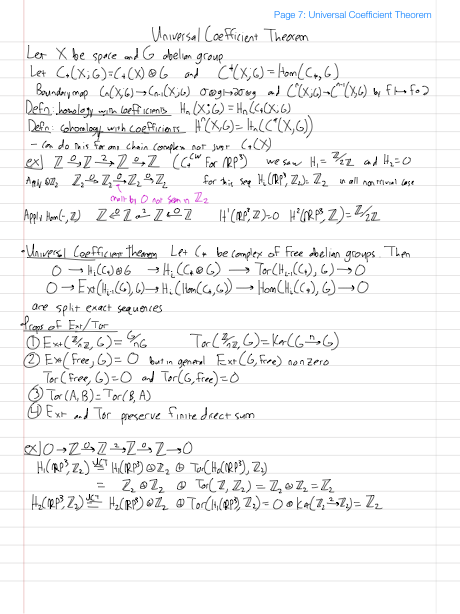 Page 7: Universal Coefficient Theorem
Universal Coefficient Theorem
Let X be space and G abelian group
Let C₊(X;G)=C₊(X)⊗G and C⁺(X;G)=Hom(C₊,G)
Boundary map Cₙ(X;G)→Cₙ₋₁(X;G) σ⊗g↦∂σ⊗g and Cⁿ(X;G)→Cⁿ⁻¹(X,G) by f↦f∘∂
Defn: homology with coefficients Hₙ(X;G)=Hₙ(C₊(X;G))
Defn: cohomology with coefficients Hⁿ(X;G)=Hₙ(C⁺(X,G))
- can do this for any chain complex not just C₊(X)
ex) ℤ →0 ℤ →2 ℤ →0 ℤ (C₊^CW for ℝP³) we saw H₁=ℤ/2ℤ and H₂=0
Apply ⊗ℤ₂ ℤ₂ →0 ℤ₂ →0 ℤ₂ →0 ℤ₂ for this seq Hᵢ(ℝP³,ℤ₂)=ℤ₂ in all nontrivial case
mult by 0 not 2 on ℤ₂
Apply Hom(-,ℤ) ℤ ←0 ℤ ←2 ℤ ←0 ℤ H¹(ℝP³,ℤ)=0 H²(ℝP³,ℤ)=ℤ/2ℤ
•Universal Coefficient theorem Let C₊ be complex of free abelian groups. Then
0 → Hᵢ(C₊)⊗G → Hᵢ(C₊⊗G) → Tor(Hᵢ₋₁(C₊),G) → 0
0 → Ext(Hᵢ₋₁(C₊),G) → Hᵢ(Hom(C₊,G)) → Hom(Hᵢ(C₊),G) → 0
are split exact sequences
Props of Ext/Tor
① Ext(ℤ/nℤ,G)=G/nG Tor(ℤ/nℤ,G)=Ker(G →n G)
② Ext(free,G)=0 but in general Ext(G,free) nonzero
Tor(free,G)=0 and Tor(G,free)=0
③ Tor(A,B)=Tor(B,A)
④ Ext and Tor preserve finite direct sum
ex) 0→ℤ →0 ℤ →2 ℤ →0 ℤ→0
H₁(ℝP³,ℤ₂) UCT= H₁(ℝP³)⊗ℤ₂ ⊕ Tor(H₀(ℝP³),ℤ₂)
= ℤ₂⊗ℤ₂ ⊕ Tor(ℤ,ℤ₂)=ℤ₂⊗ℤ₂=ℤ₂
H₂(ℝP³,ℤ₂) UCT= H₂(ℝP³)⊗ℤ₂ ⊕Tor(H₁(ℝP³),ℤ₂)=0⊕Ker(ℤ₂ →2 ℤ₂)=ℤ₂